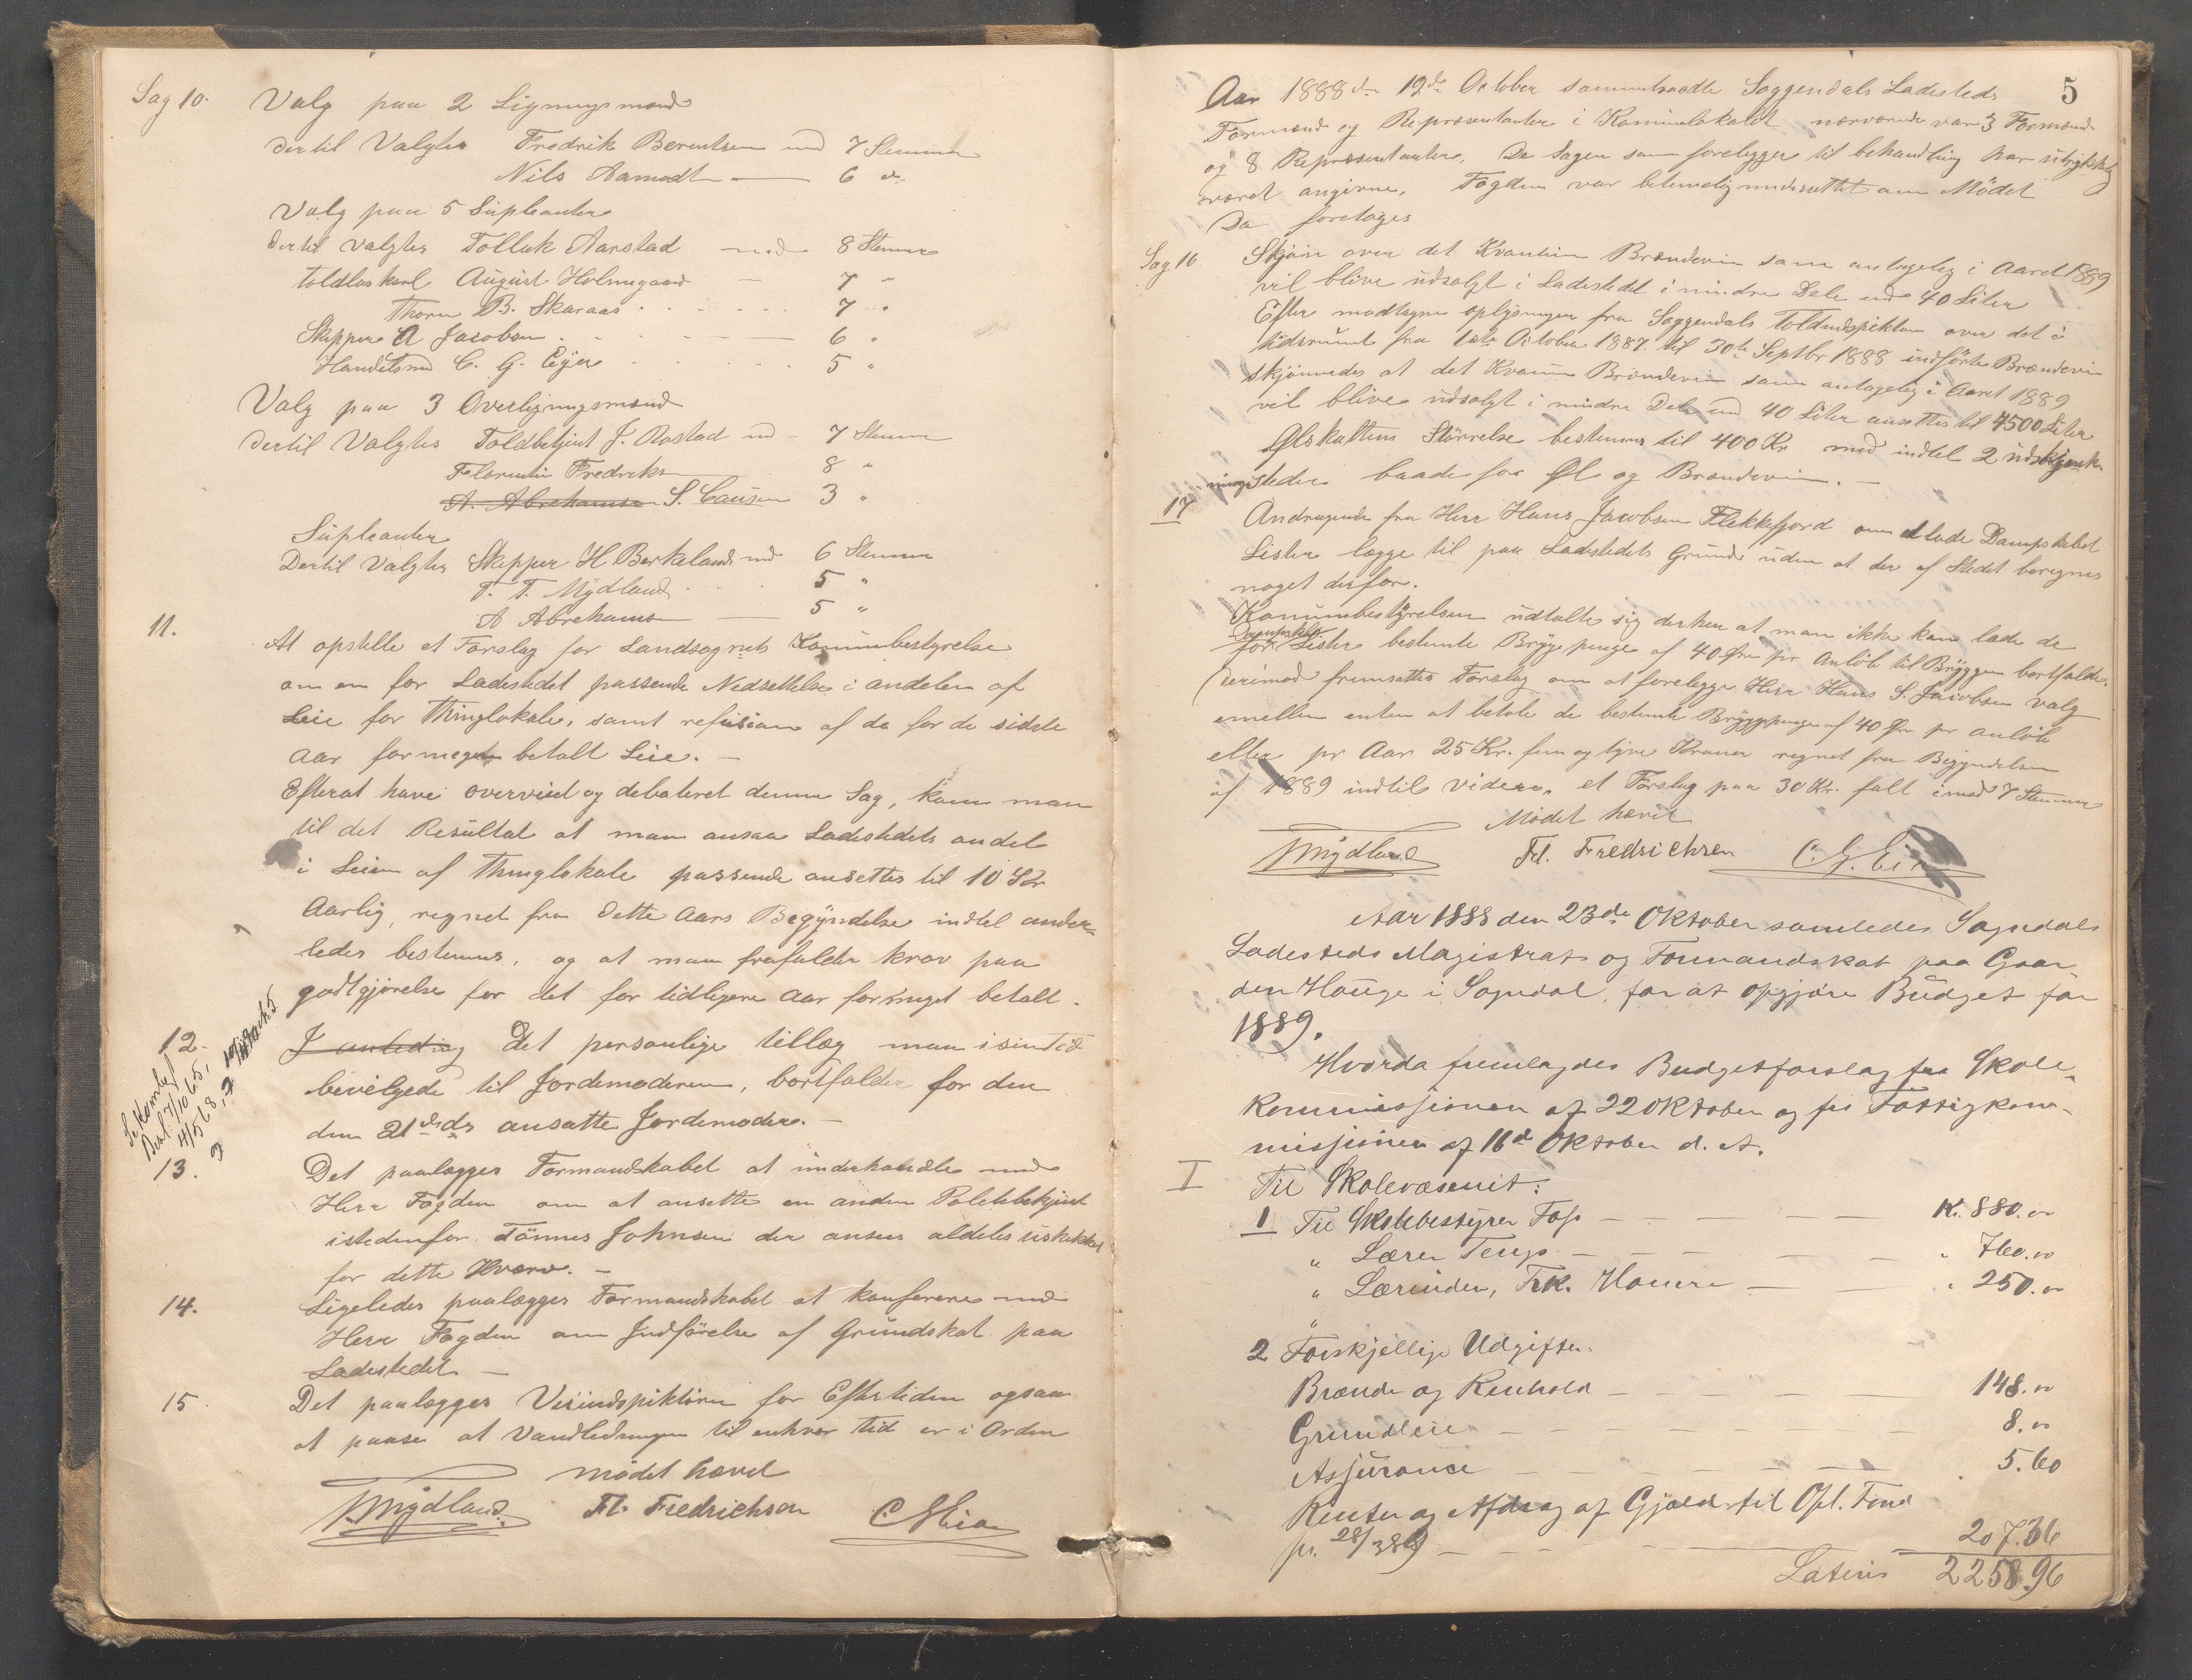 Sag 10. Valg paa 2 Ligningsmænd
dertil Valgtes Fredrik Berentsen med 7 Stemmer
Nils Aamodt — 6 do
Valg paa 5 Supleanter
dertil valgtes Tollak Aarstad med 8 Stemmer
August Holmegaard — 7 "
Thorn B. Skaraas 7 "
Skipper A Jacobsen 6 "
Handelsmd C. G. Eger 5 "
Valg paa 3 Overligningsmænd
dertil Valgtes Toldbetjent J. Rostad md – 7 Stemm
Florentin Fredriks 8 "
A. Abrehamsen S. Clausen 3 "
Supleanter
Dertil Valgtes Skipper H Berkeland md 6 Stemmer
T. T. Mydland 5 "
A Abrehams — 5 "
11. At opstille et Forslag for Landsognets Kommunbestyrelse
om en for Ladestedet passende Nedsettelse i andelen af
Leie for Thinglokale, samt refusion af da for de sidste
Aar formeget betalt Leie. –
Efterat have overveiet og debateret denne Sag, kom man
til det Resultat at man ansaa Ladestedets andel
i Leien af Thinglokale passende ansettes til 10 Kr
Aarlig, regnet fra dette Aars Begyndelse indtil ander-
ledes bestemmes, og at man frafalder krav paa
godtgjørelse for det for tidligere Aar formeget betalt.
12. I anledning Det personlige tillæg man i sin Tid
bevilgede til Jordemoderen, bortfalder for den
den 21de ds ansatte Jordemoder. –
13. Det paalægges Formandskabet at underhandle med
Herr Fogden om at ansette en anden Politibetjent
istedenfor Tønnes Johnsen der ansees aldeles uskikket
for dette Hverv. –
14. Ligeledes paalægges Formandskabet at konferere med
Herr Fogden om Indførelse af Grundskat paa
Ladestedet –
15 Det paalægges Veiindspiktøren for Eftertiden ogsaa
at paase at Vandledningen til enhver tid er i Orden
mødet hævet
TMydland Fl. Fredrichsen C. G. Eia
5
Aar 1888 den 19de October sammentraadte Soggendals Ladesteds
Formænd og Repræsentanter i Komunelokalet nærværende var 3 Formænd
og 8 Repræsentanter. De Sager som forelegger til behandling har
været angivne. Fogden var betimelig underrettet om Mødet
Da foretoges
Sag 16 Skjøn over det Kvantum Brændevin som antagelig i Aaret 1889
vil blive udsolgt i Ladestedet i mindre Dele end 40 Liter
Efter modtagne oplysninger fra Soggendals Toldindspiktion over det i
tidsrumet fra 1ste October 1887 til 30te Septbr 1888 indførte Brændevin
skjønnedes at det Kvantum Brændevin som antagelig i Aaret 1889
vil blive udsolgt i mindre Dele end 40 Liter ansettes til 4500 Liter
Ølskattens Størrelse bestemmes til 400 Kr med indtil 2 udskjenk-
ningsteder baade for Øl og Brændevin. –
17 Andragende fra Herr Hans Jacobsen Flekkefjord om at lade Dampskibet
Lister lægge til paa Ladestedets Grunde uden at der af Stedet beregnes
noget derfor.
Kommunbestyrelsen udtalte sig derhen at man ikke kan lade de
for Dampskibet Lister bestemte Bryggepenge af 40 Øre pr Anløb til Bryggen bortfalde.
Derimod fremsattes Forslag om at forelegge Herr Hans S. Jacobsen valg
emellem enten at betale de bestemte Bryggepenge af 40 Øre pr anløb
eller pr Aar 25 Kr. fem og tyve Kroner regnet fra Begyndelsen
af 1889 indtil videre, et Forslag paa 30 Kr. falt imod 7 Stemmer
Mødet hævet
TMydland Fl. Fredrichsen C. G. Eia
Aar 1888 den 23de Oktober samledes Sogndals
Ladesteds Magistrat og Formandskab paa Gaar-
den Hauge i Sogndal, for at opgjøre Budget for
1889.
Hvorda fremlagdes Budgetforslag fra Skole-
kommissionen af 22 Oktober og fra Fattigkom-
missionen af 16de Oktober d. A.
I Til Skolevæsenet:
1 Til Skolebestyrer Foss — Kr. 880.00
" Lærer Tengs — " 760.00
" Lærerinden, Frk. — " 250.00
"
2 Forskjellige Udgifter.
Brænde og Renhold — 148.00
Grundleie — 8.00
Assurance — 5.60
Renter og Afdrag af Gjæld til Opl. Fond
pr. 28/3 89 — 207.36
Lateris 2258.96